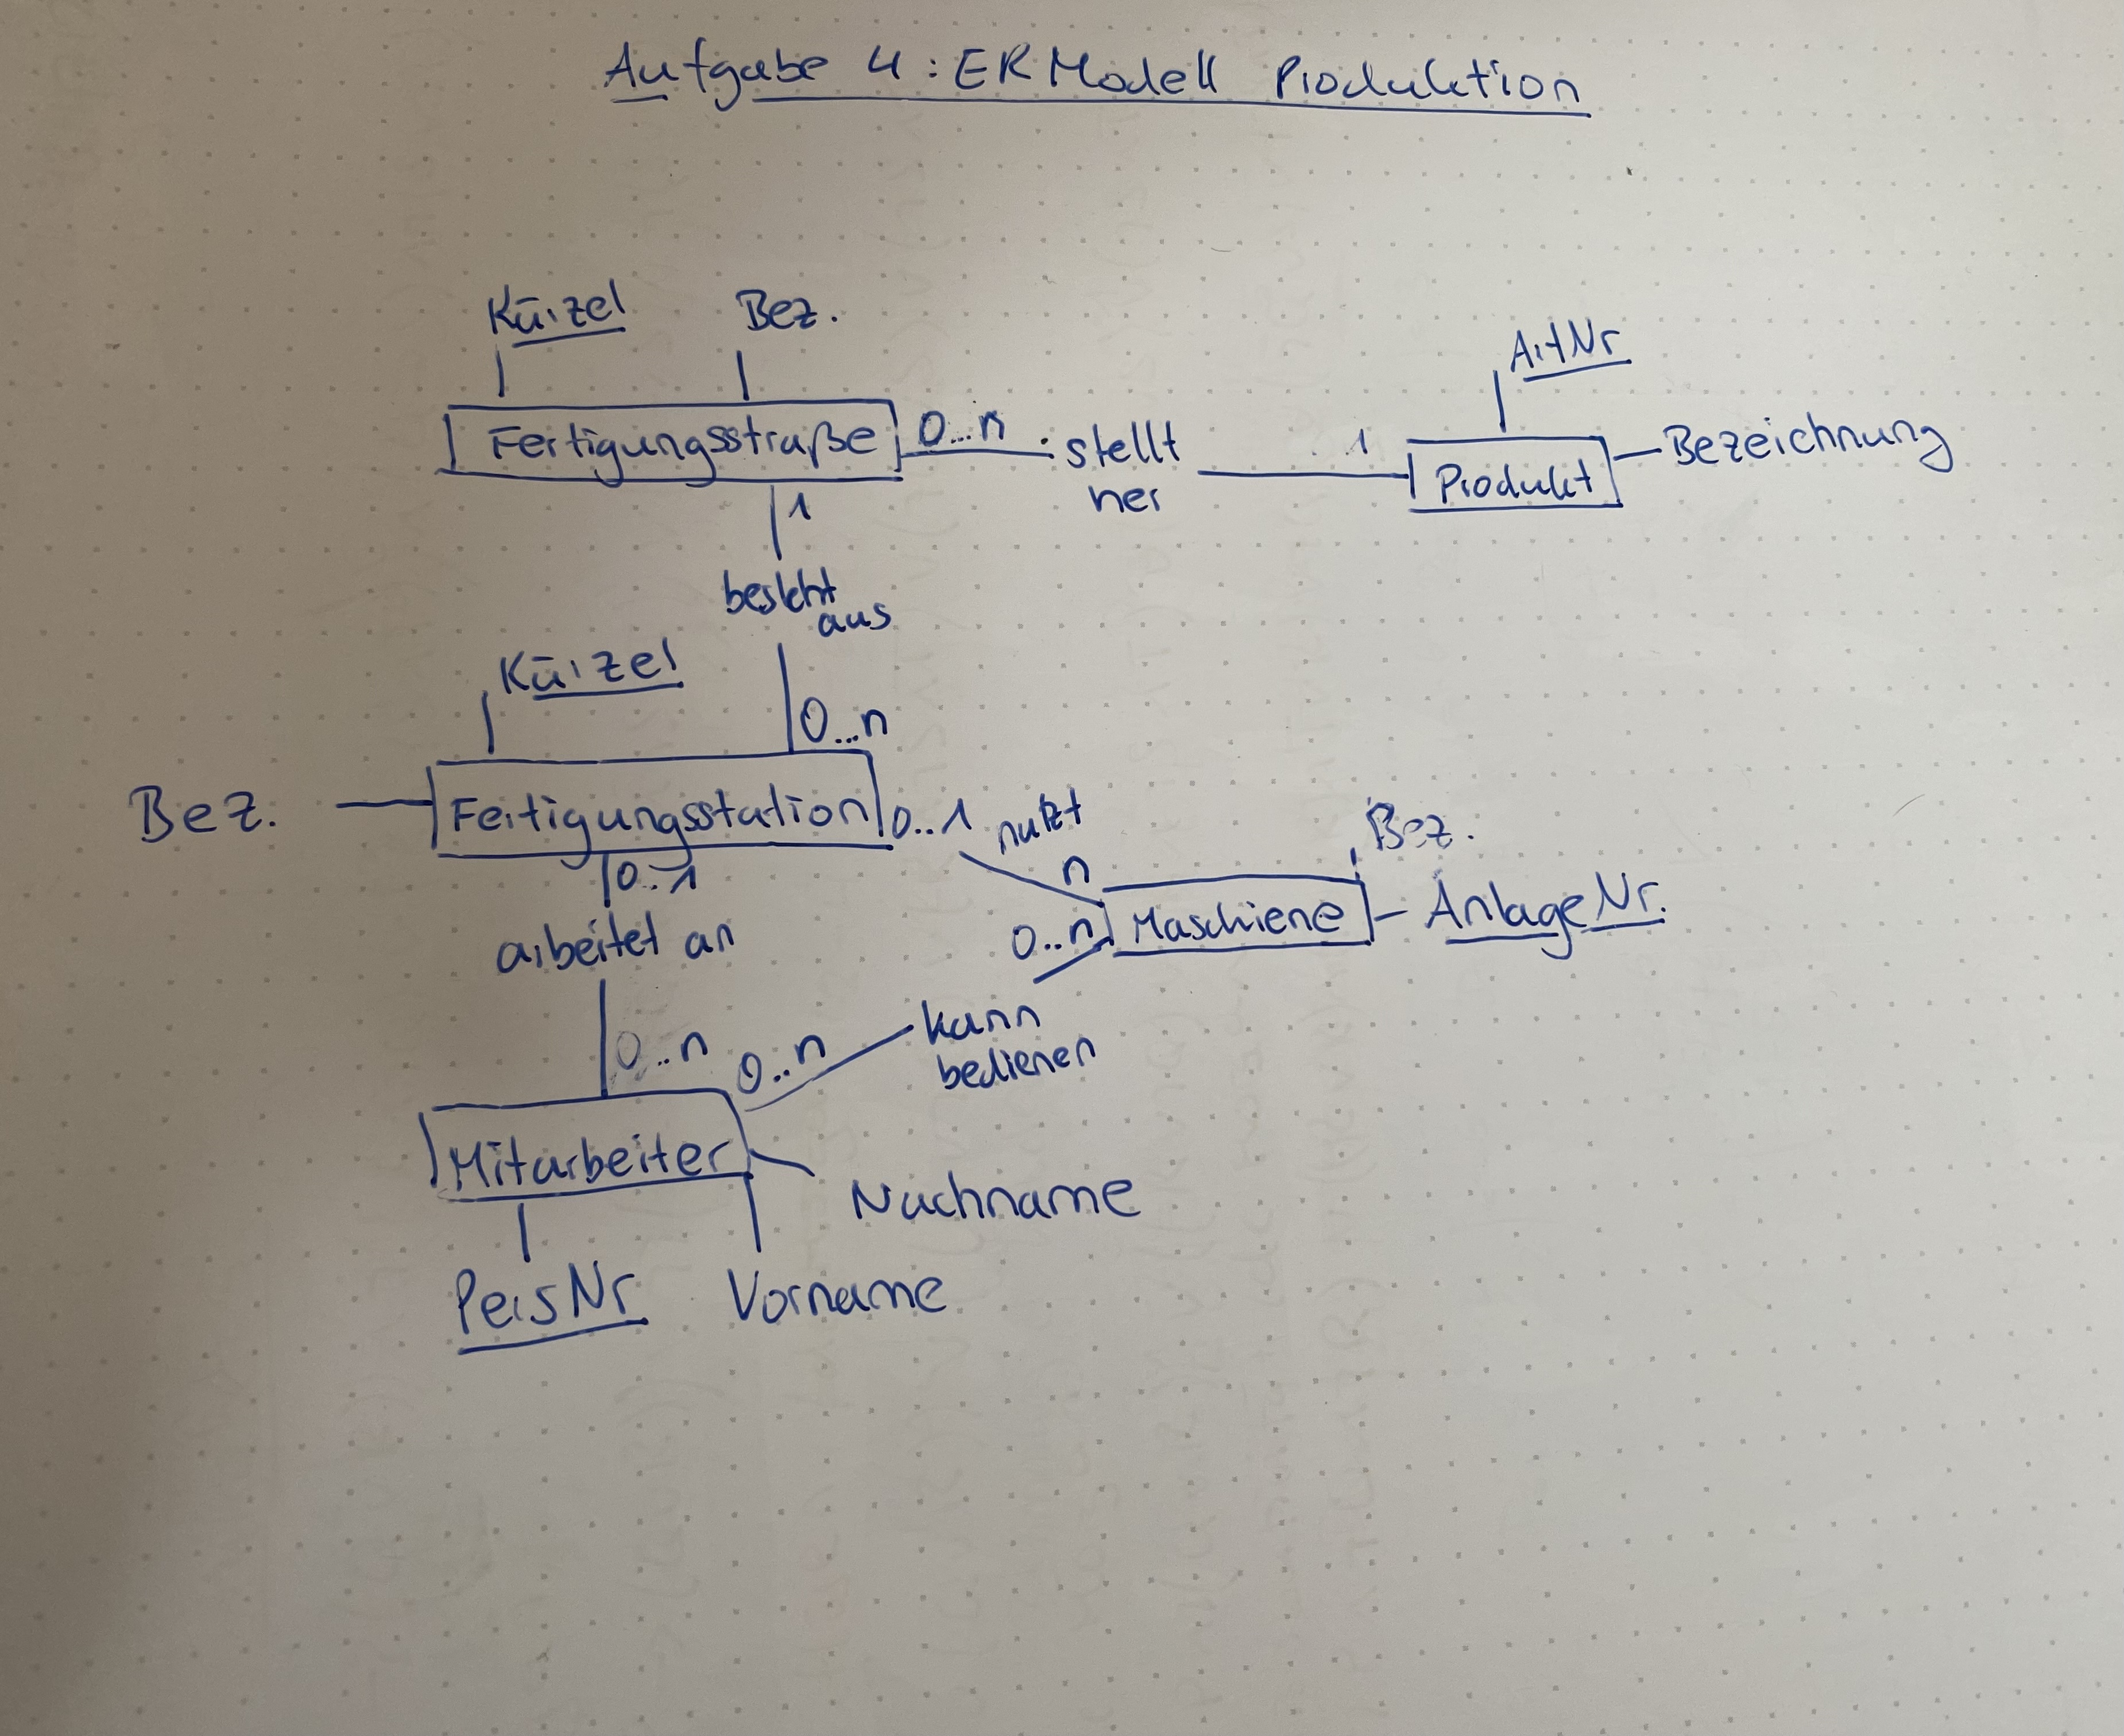 Aufgabe 4: ER Modell Produktion
Kürzel Bez.
ArtNr
Fertigungsstraße 0...n stellt her 1 Produkt Bezeichnung
1
besteht aus
Kürzel
0...n
Bez. Fertigungsstation 0..1 nutzt
Bez.
0..1 n
arbeitet an 0..n Maschiene AnlageNr.
0..n 0..n kann bedienen
Mitarbeiter
Nachname
PersNr Vorname